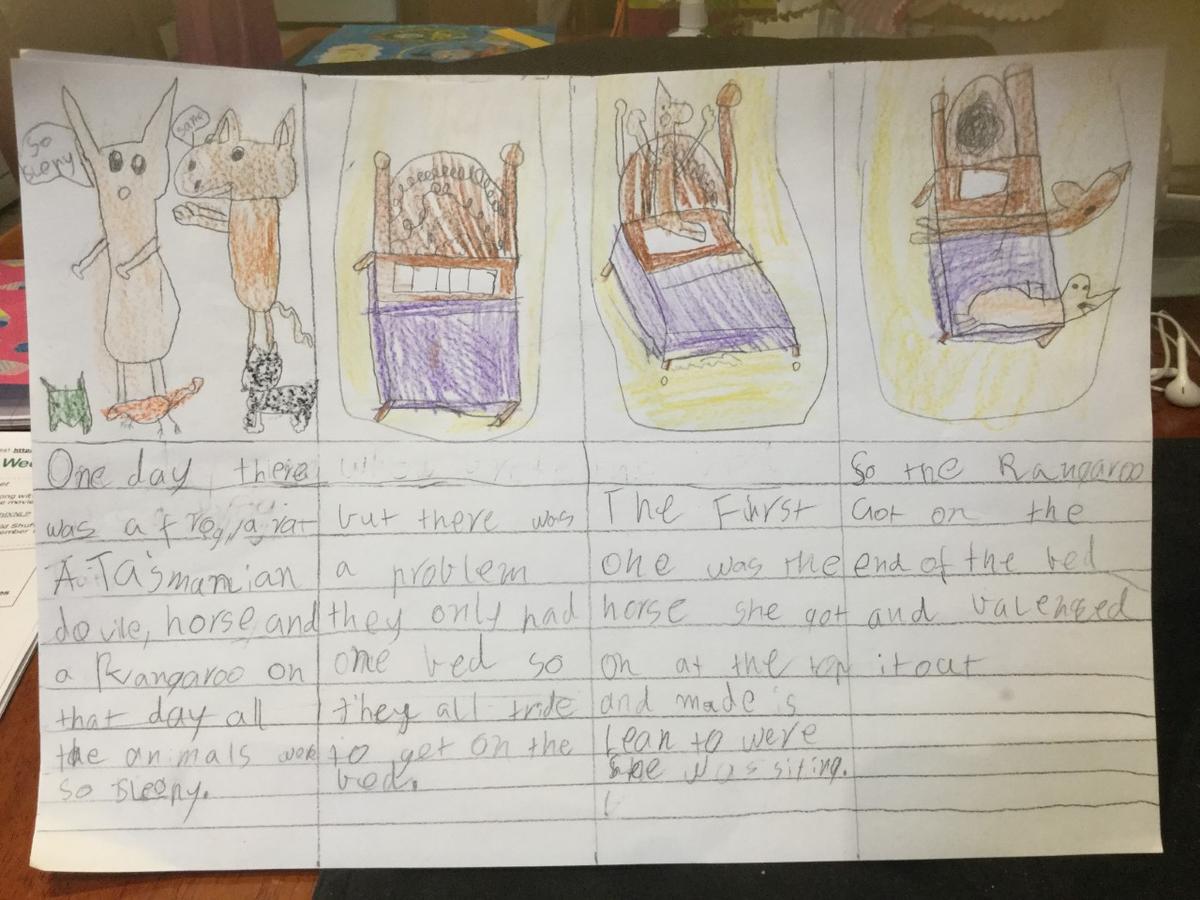 So
Sleeny
same
One day there
was a frog, a rat
A Tasmanian
devile, horse, and
a Kangaroo on
that day all
the animals were
so sleeny.
but there was
a problem
they only had
one bed so
they all tride
to get on the
bed.
The First
one was the
horse she got
on at the top
and made is
lean to were
she was siting.
So the Kangaroo
Got on the
end of the bed
and balenced
it out